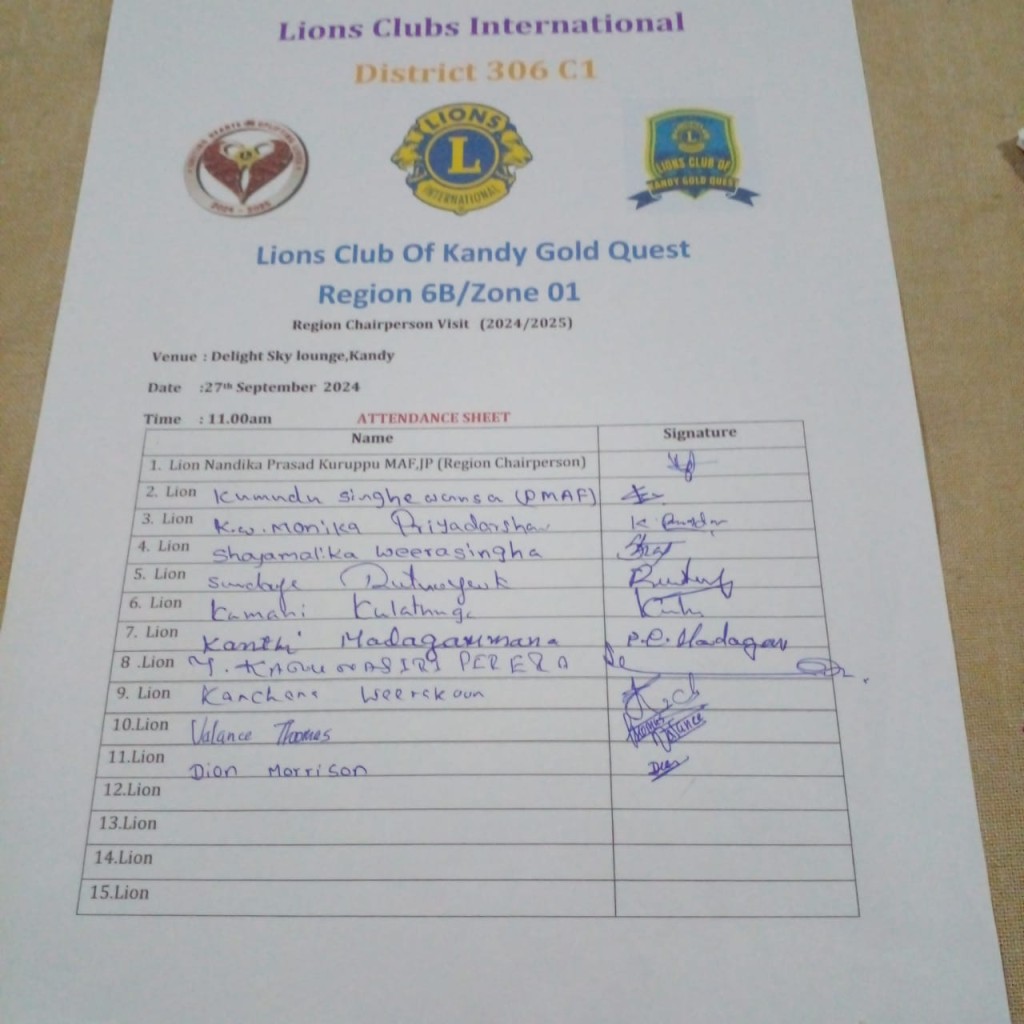 Lions Clubs International
District 306 C1
LIONS
L
INTERNATIONAL
LIONS CLUB OF
KANDY GOLD QUEST
Lions Club Of Kandy Gold Quest
Region 6B/Zone 01
Region Chairperson Visit (2024/2025)
Venue : Delight Sky lounge,Kandy
Date :27th September 2024
Time : 11.00am ATTENDANCE SHEET
Name Signature
1. Lion Nandika Prasad Kuruppu MAF,JP (Region Chairperson)
2. Lion Kumudu Singhe wansa (PMAF)
3. Lion K.W. Monika Priyadarsha
4. Lion Shajamalika Weerasingha
5. Lion
6. Lion Kamani Kulathunga
7. Lion Kanthi Madagammana P.C. Madagam
8 .Lion PERERA
9. Lion Kanchana Weerakoon
10.Lion Valance Thomes Thomes Valance
11.Lion Dion Morrison Dion
12.Lion
13.Lion
14.Lion
15.Lion